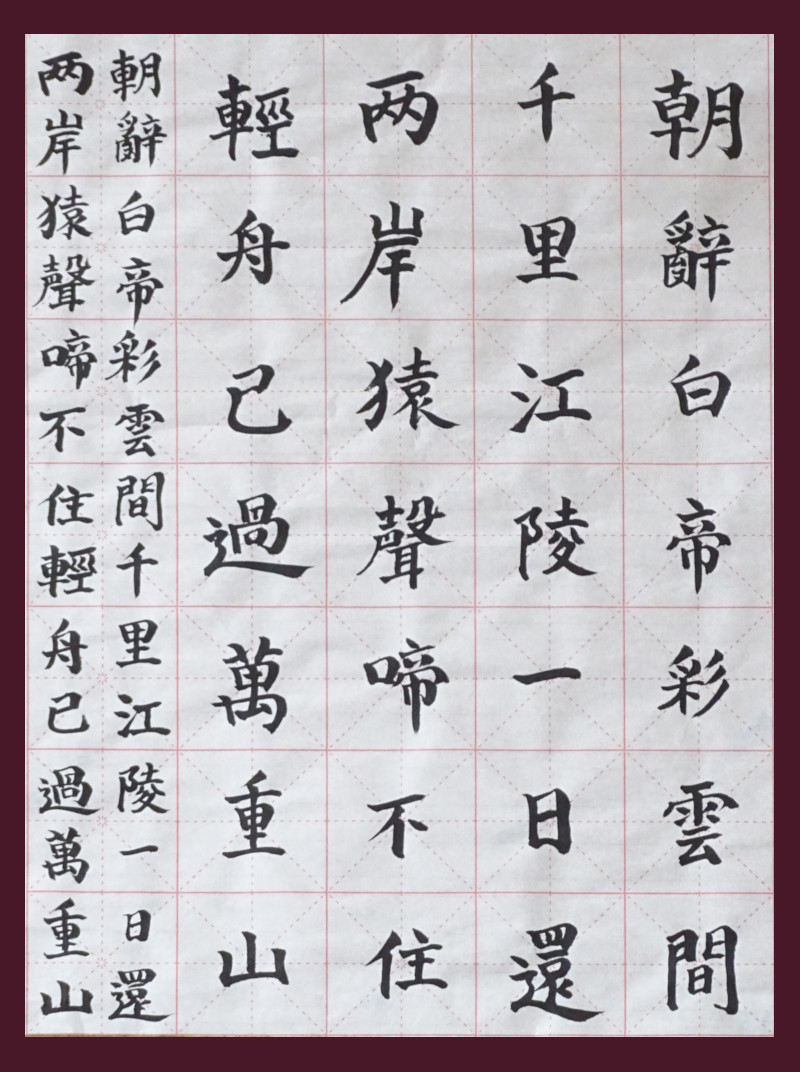 朝辭白帝彩雲間
千里江陵一日還
两岸猿聲啼不住
輕舟已過萬重山
朝辭白帝彩雲間千里江陵一日還
两岸猿聲啼不住輕舟已過萬重山